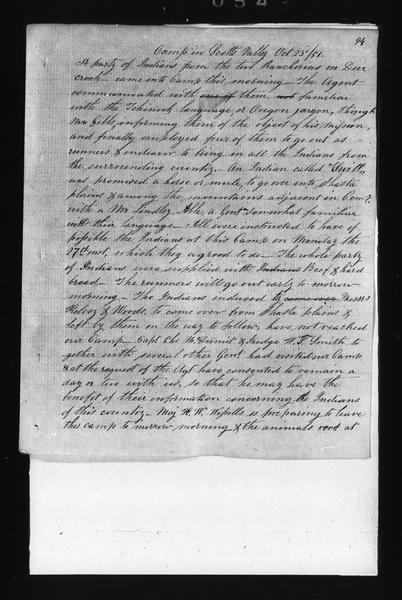 94
Camp in Scotts Valley Oct 23d/51.
A party of Indians from the two Rancherias on Deer
creek - came into Camp this morning - The Agent
communicated with one of them not familiar
with the Tchinook language, or Oregon jargon, through
Mr Gibbs, informing them of the object of his mission,
and finally employed four of them to go out as
runners & endeavor to bring in all the Indians from
the surrounding country. An Indian called "Swill",
was promised a horse or mule, to go over into Shasta
plains & among the mountains adjacent in Comy
with a Mr Lindley Able, a Gent somewhat familiar
with their language - All were instructed to have if
possible the Indians at this Camp on Monday the
27th inst, which they agreed to do - The whole party
of Indians were supplied with Indians Beef & hard
bread - The runners will go out early to morrow
morning - The Indians induced by Messrs
Kelsey & Woods, to come over from Shasta plains &
left by them on the way to follow, have not reached
our Camp - Capt Chs McDermit & Judge W. T. Smith to
gether with several other Gent had visited our Camp
& at the request of the Agt have consented to remain a
day or two with us, so that he may have the
benefit of their information concerning the Indians
of this country - Maj H. W. Wessells is preparing to leave
this camp to morrow morning & the animals at